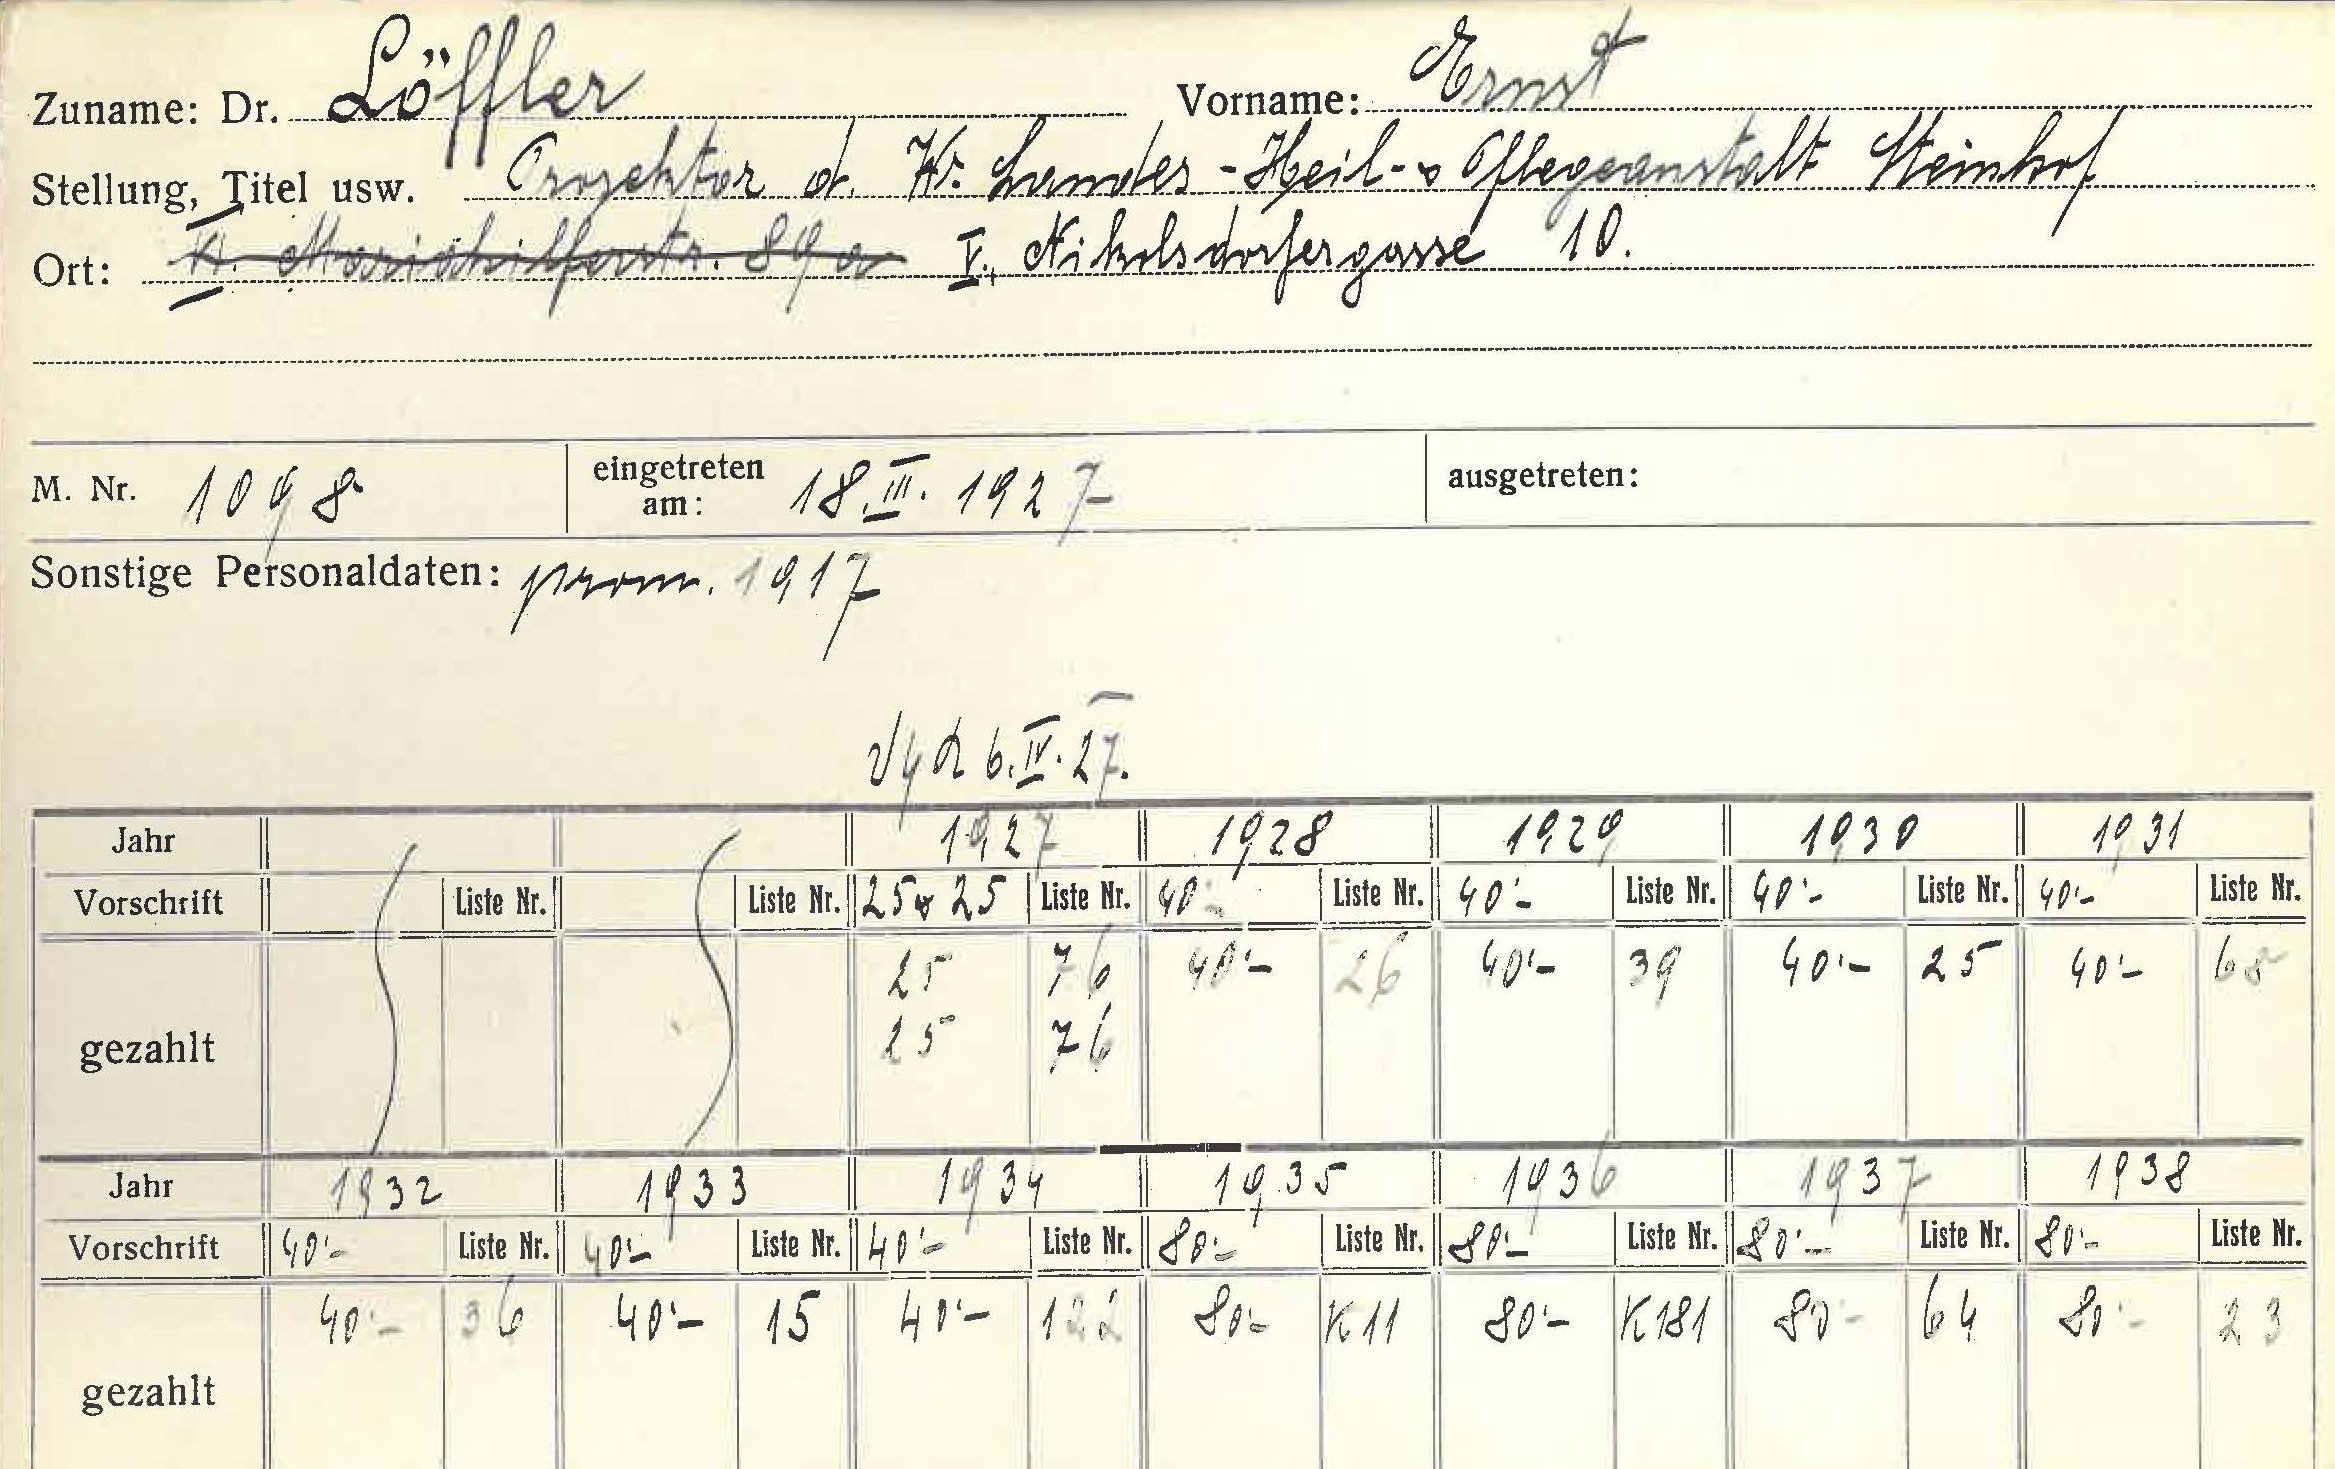 Zuname: Dr. Löffler Vorname: Ernst
Stellung, Titel usw. Prosektor d. Landes-Heil- Pflegeanstalt Steinhof
Ort: VI. Mariahilferstr. 89a V., Nikolsdorfergasse 10.
M. Nr. 1098 eingetreten am: 18.III.1927 ausgetreten:
Sonstige Personaldaten: prom. 1917
6.IV.27.
Jahr 1927 1928 1929 1930 1931
Vorschrift Liste Nr. Liste Nr. 25 + 25 Liste Nr. 40'- Liste Nr. 40'- Liste Nr. 40'- Liste Nr. 40'- Liste Nr.
gezahlt 25 76 40'- 26 40'- 39 40'- 25 40'- 68
25 76
Jahr 1932 1933 1934 1935 1936 1937 1938
Vorschrift 40'- Liste Nr. 40'- Liste Nr. 40'- Liste Nr. 80'- Liste Nr. 80'- Liste Nr. 80'- Liste Nr. 80'- Liste Nr.
gezahlt 40'- 36 40'- 15 40'- 122 80'- K11 80'- K181 80'- 64 80'- 23